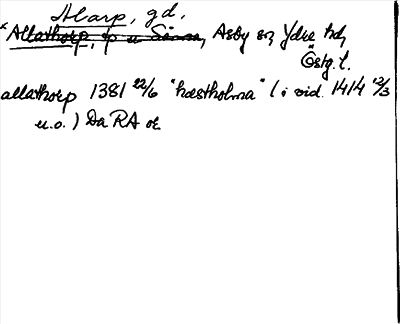 Alarp, gd,
*Allathorp, Asby sn, Ydre hd,
Östg. l.
allathorp 1381 22/6 "hæstholma" (i vid. 1414 12/3
u.o.) Da RA or